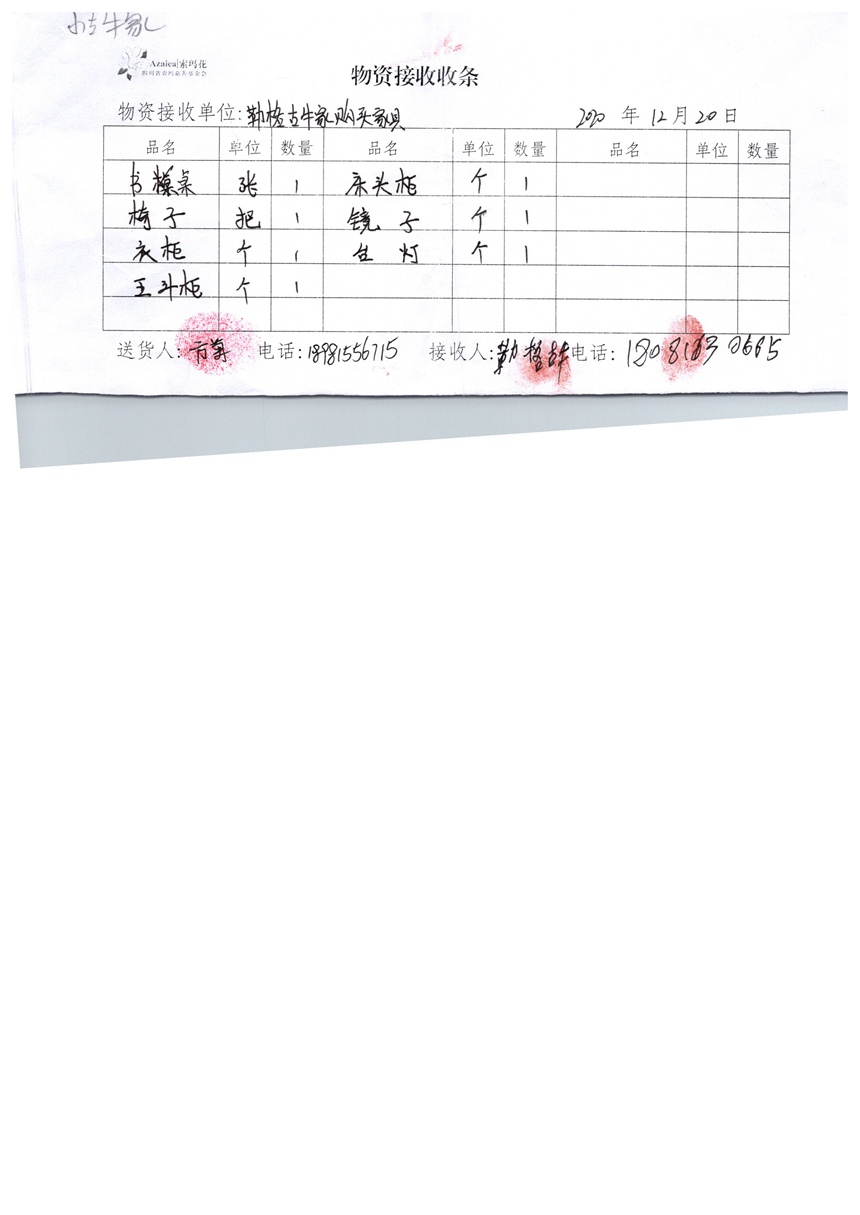 古牛家
Azaica|索玛花
四川省索玛慈善基金会
物资接收收条
物资接收单位:勒格古牛家购买家具 2020 年 12 月 20 日
品名 单位 数量 品名 单位 数量 品名 单位 数量
书桌 张 1 床头柜 个 1
椅子 把 1 镜子 个 1
衣柜 个 1 台灯 个 1
五斗柜 个 1
送货人: 电话:18981556715 接收人:勒格 电话: